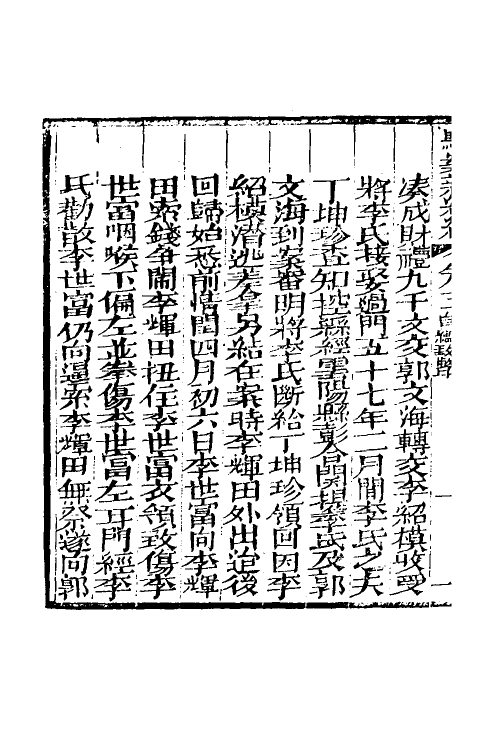 湊成財禮九千文交郭文海轉交李紹模收受
將李氏接娶過門五十七年二月間李氏之夫
丁坤珍查知控縣經雲陽縣彭人品關提李氏及郭
文海到案審明將李氏斷給丁坤珍領回因李
紹模潛逃差拿另結在案時李輝田外出迨後
回歸始悉前情閏四月初六日李世富向李輝
田索錢爭鬧李輝田扭住李世富衣領致傷李
世富咽喉下偏左並拳傷李世富左耳門經李
氏勸散李世富仍向逼索李輝田無奈遂向郭